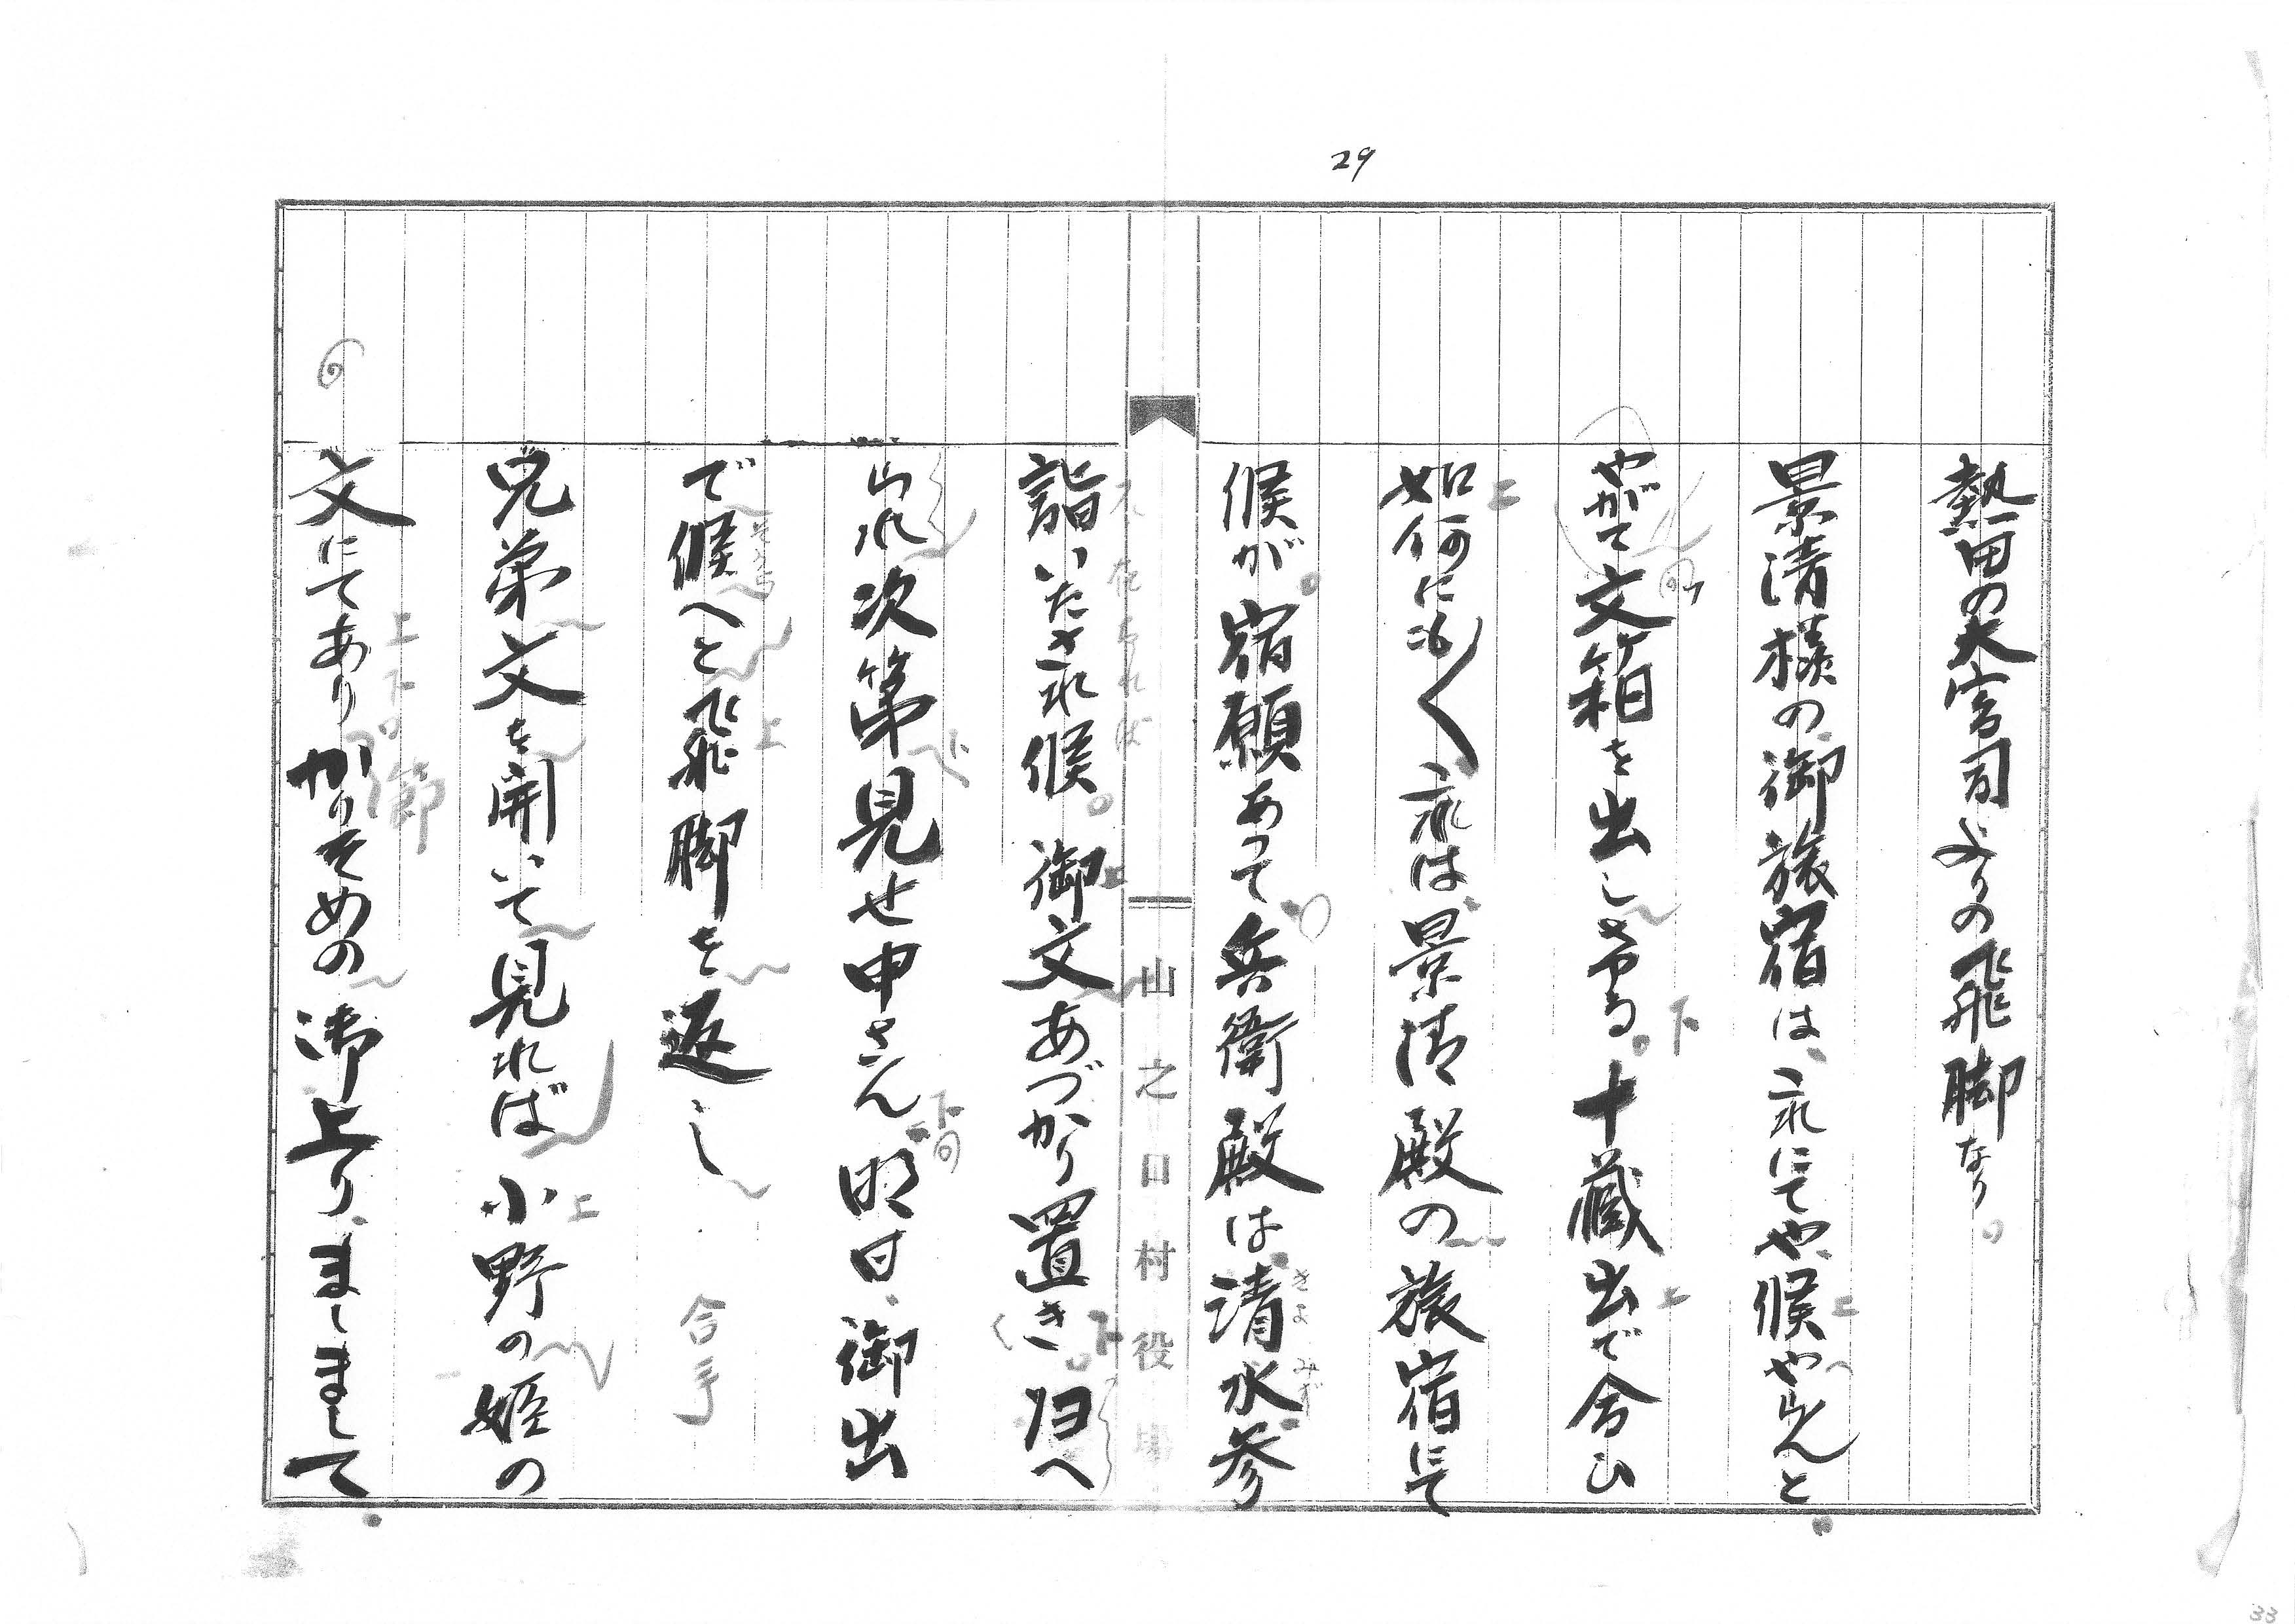 29
熱田の大宮司よりの飛脚なり。
景清様の御旅宿は、これにてや、候やらんと
やがて文箱を出しける。十蔵出で合ひ
如何にも〱これは景清殿の旅宿にて
候が宿願あって兵衛殿は清水参
きよみず
山之口村役場
詣いたされ候。御文あづかり置き。帰へ
られ次第見せ申さん明日、御出
で候へと飛脚を返し
合手
兄弟文を開いて見れば小野の姫の
文にてありかりそめの御上り、ましまして
節
33